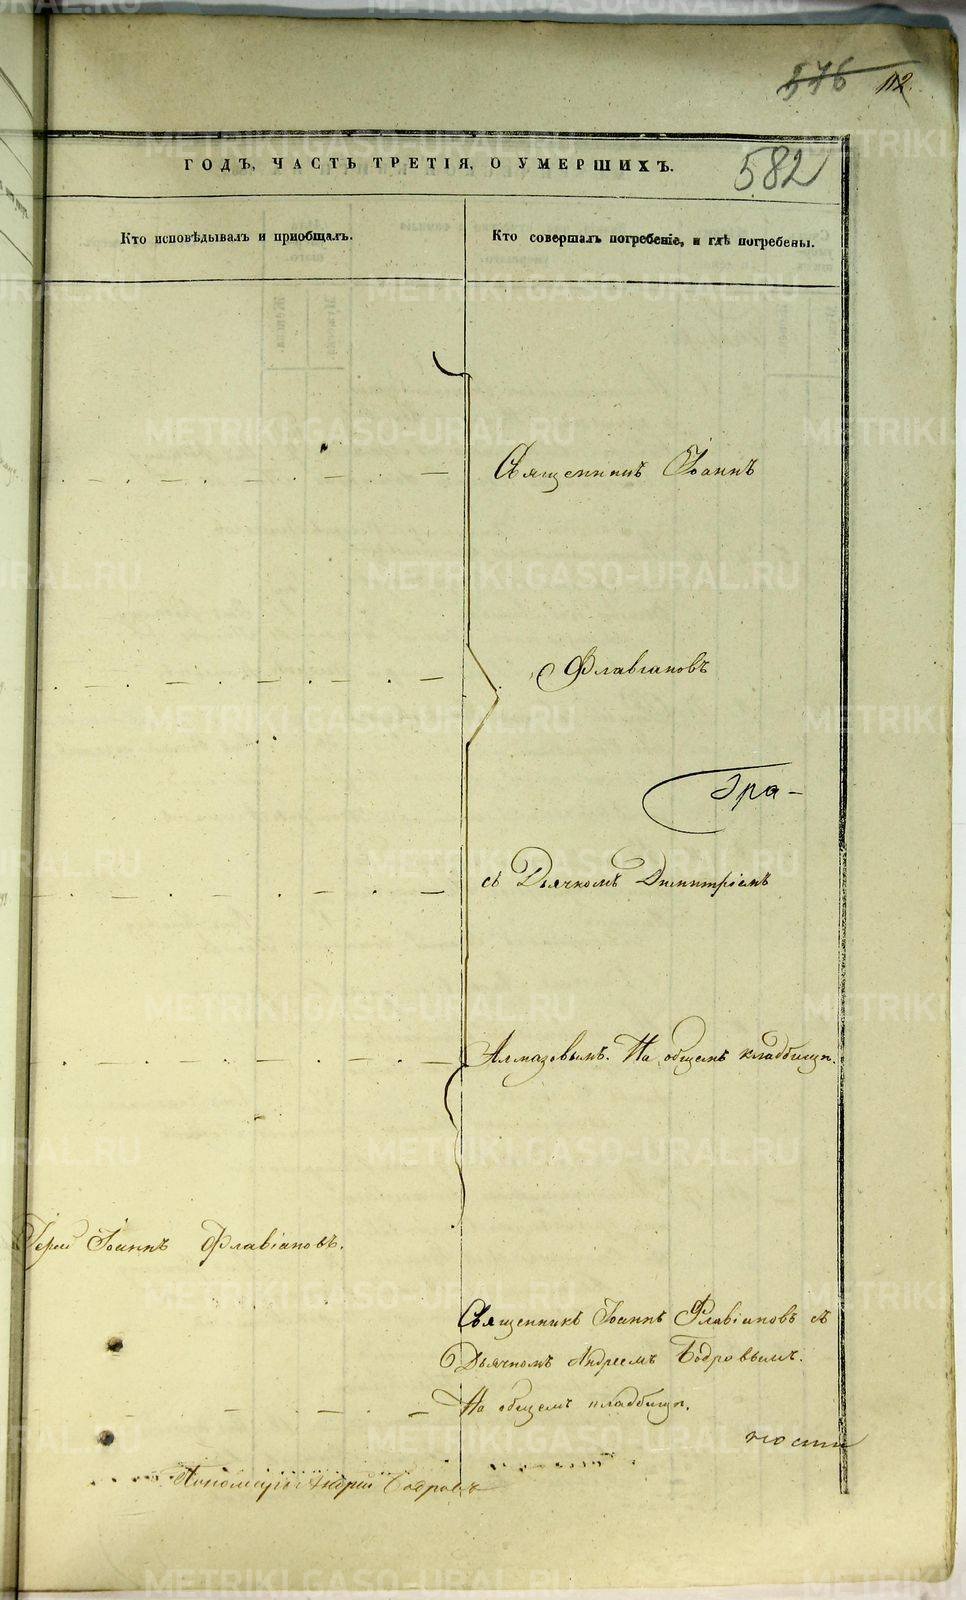 576 112.
ГОДЪ, ЧАСТЬ ТРЕТІЯ, О УМЕРШИХЪ.
582
Кто исповѣдывалъ и приобщалъ.
Кто совершалъ погребеніе, и гдѣ погребены.
Священникъ Іоаннъ
Флавіановъ
Гра-
съ Дьячкомъ Димитріемъ
Алмазовымъ. На общемъ кладбищѣ.
Іерей Іоаннъ Флавіановъ.
Священникъ Іоаннъ Флавіановъ съ
Дьячкомъ Андреемъ Бодровымъ.
На общемъ кладбищѣ.
Пономарь Андрей Бодровъ
METRIKI.GASO-URAL.RU